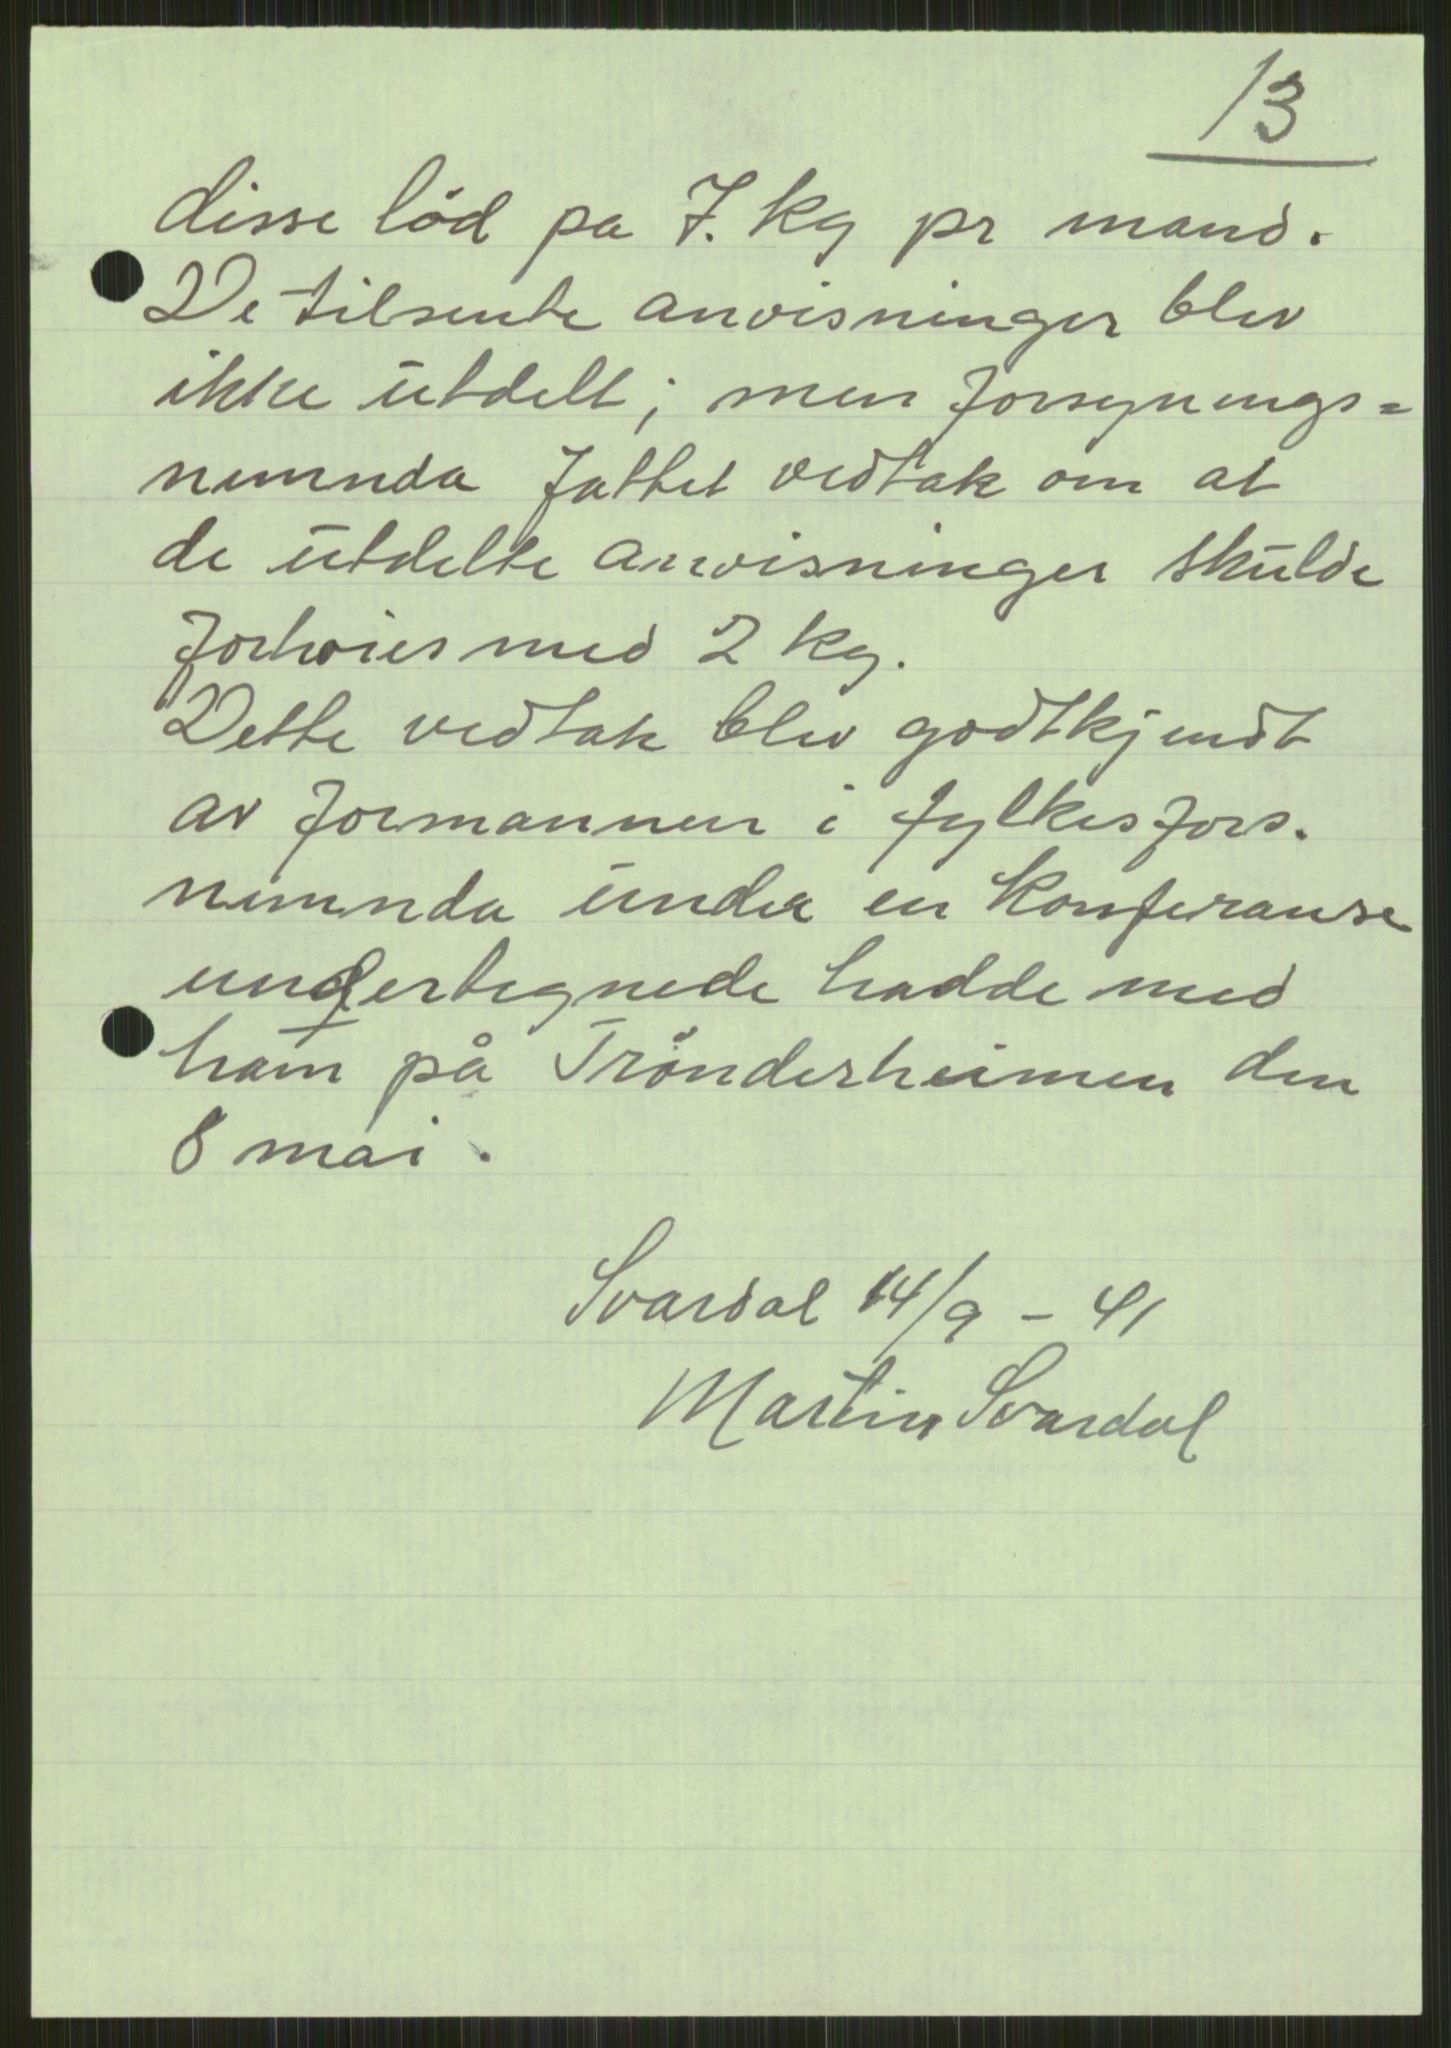 13
disse löd pa 7. kg pr mand.
De tilsente anvisninger blev
ikke utdelt; men forsynings=
nemnda fattet vedtak om at
de utdelte anvisninger skulde
forhøies med 2 kg.
Dette vedtak blev godtkjendt
av formannen i fylkesfors.
nemnda under en konferanse
undertegnede hadde med
ham på Trönderheimen den
8 mai.
Svardal 14/9 - 41
Martin Svardal